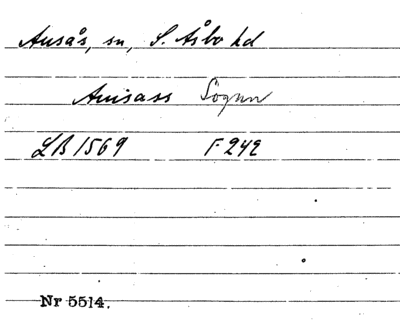 Ausås, sn, S. Åsbo hd
Auisass Sognn
LB 1569 F 242
Nr 5514.